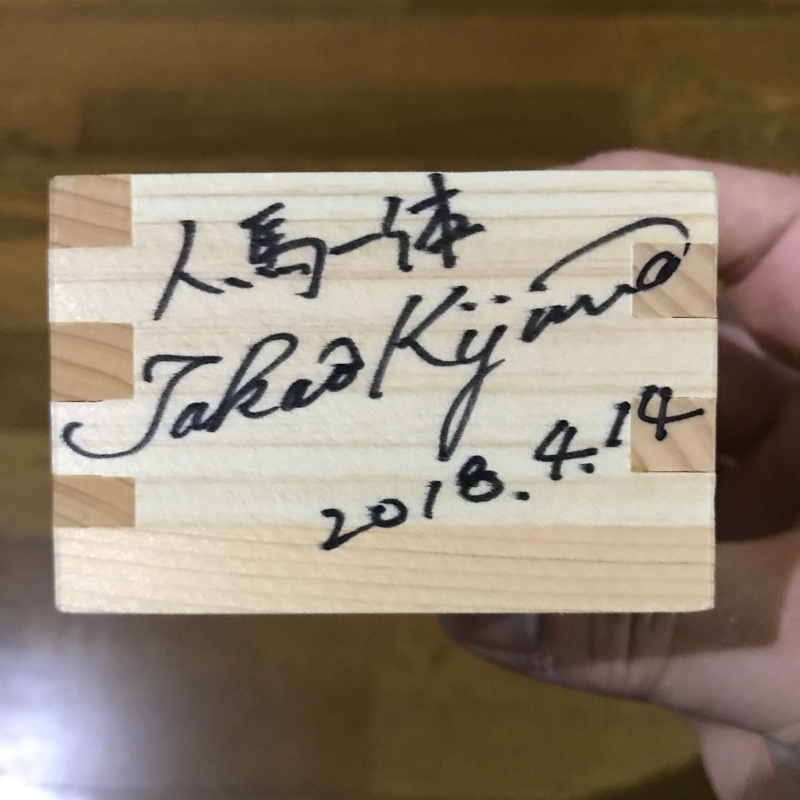 人馬一体
Takao Kijima
2018.4.14